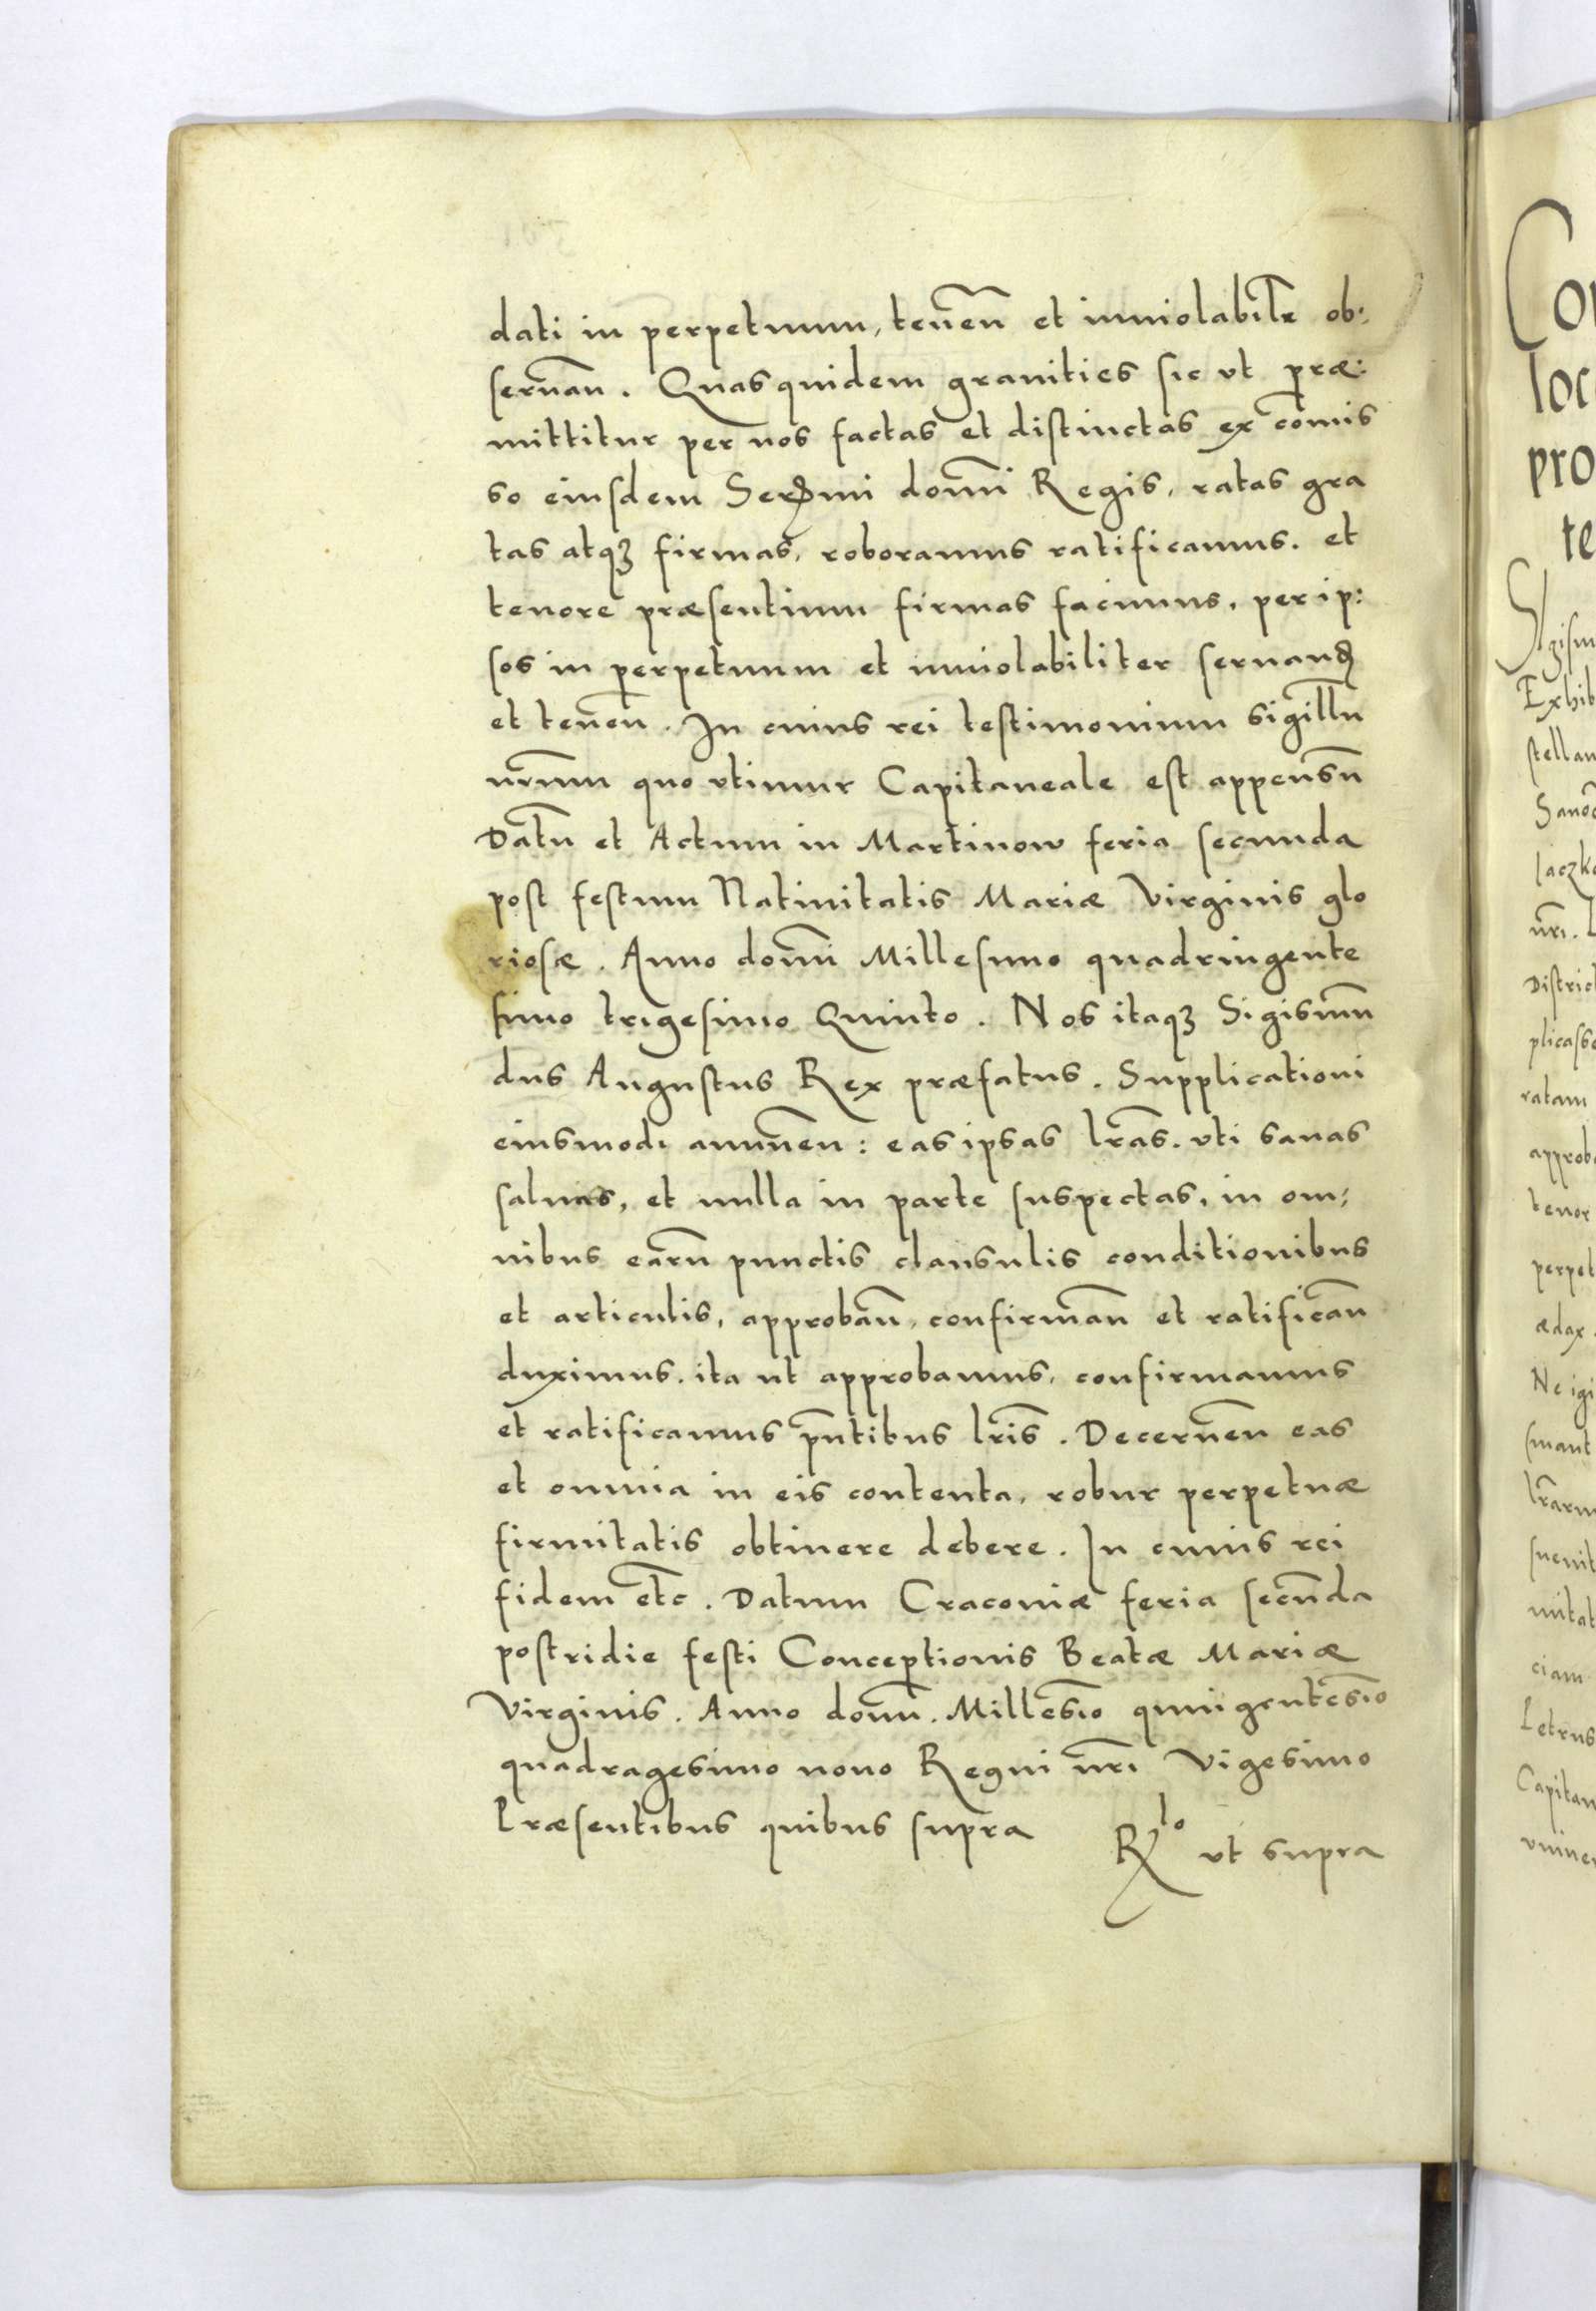 dati in perpetuum, teneñ et inuiolabilr̃ ob:
seruañ. Quas quidem granities sic vt præ:
mittitur per nos factas et distinctas ex com̃is
so eiusdem Serᵭmi dom̃i Regis, ratas gra
tas atqꝫ firmas, roboramus ratificamus. et
tenore præsentium firmas facimus, per ip:
sos in perpetuum et inuiolabiliter seruanᵭ
et teneñ. In cuius rei testimonium sigillũ
nr̃um quo vtimur Capitaneale est appensũ
Datũ et Actum in Martinow feria secunda
post festum Natiuitatis Mariæ Virginis glo
riosæ. Anno dom̃i Millesimo quadringente
simo trigesimo Quinto. Nos itaqꝫ Sigismũ
dus Augustus Rex præfatus. Supplicationi
eiusmodi annueñ: eas ipsas lr̃as. vti sanas
saluas, et nulla in parte suspectas, in om:
nibus earũ punctis clausulis conditionibus
et articulis, approbañ, confirmañ et ratificañ
duximus. ita ut approbamus, confirmamus
et ratificamus pñtibus lr̃is. Decerneñ eas
et omnia in eis contenta, robur perpetuæ
firmitatis obtinere debere. In cuius rei
fidem etc̃. Datum Cracouiæ feria secũda
postridie festi Conceptionis Beatæ Mariæ
Virginis. Anno dom̃. Millesĩo quingentesĩo
quadragesimo nono Regni nr̃i Vigesimo
Præsentibus quibus supra
Rˡᵒ vt supra
Co
loc
pro
te
Sigism
Exhib
stellan
Sanoc
Jaczko
nr̃i. L
District
plicasse
ratam
approb
tenor
perpet
ædax
Ne igi
smant
lr̃arum
suenit
nitat
ciam
Petrus
Capitan
vniuer